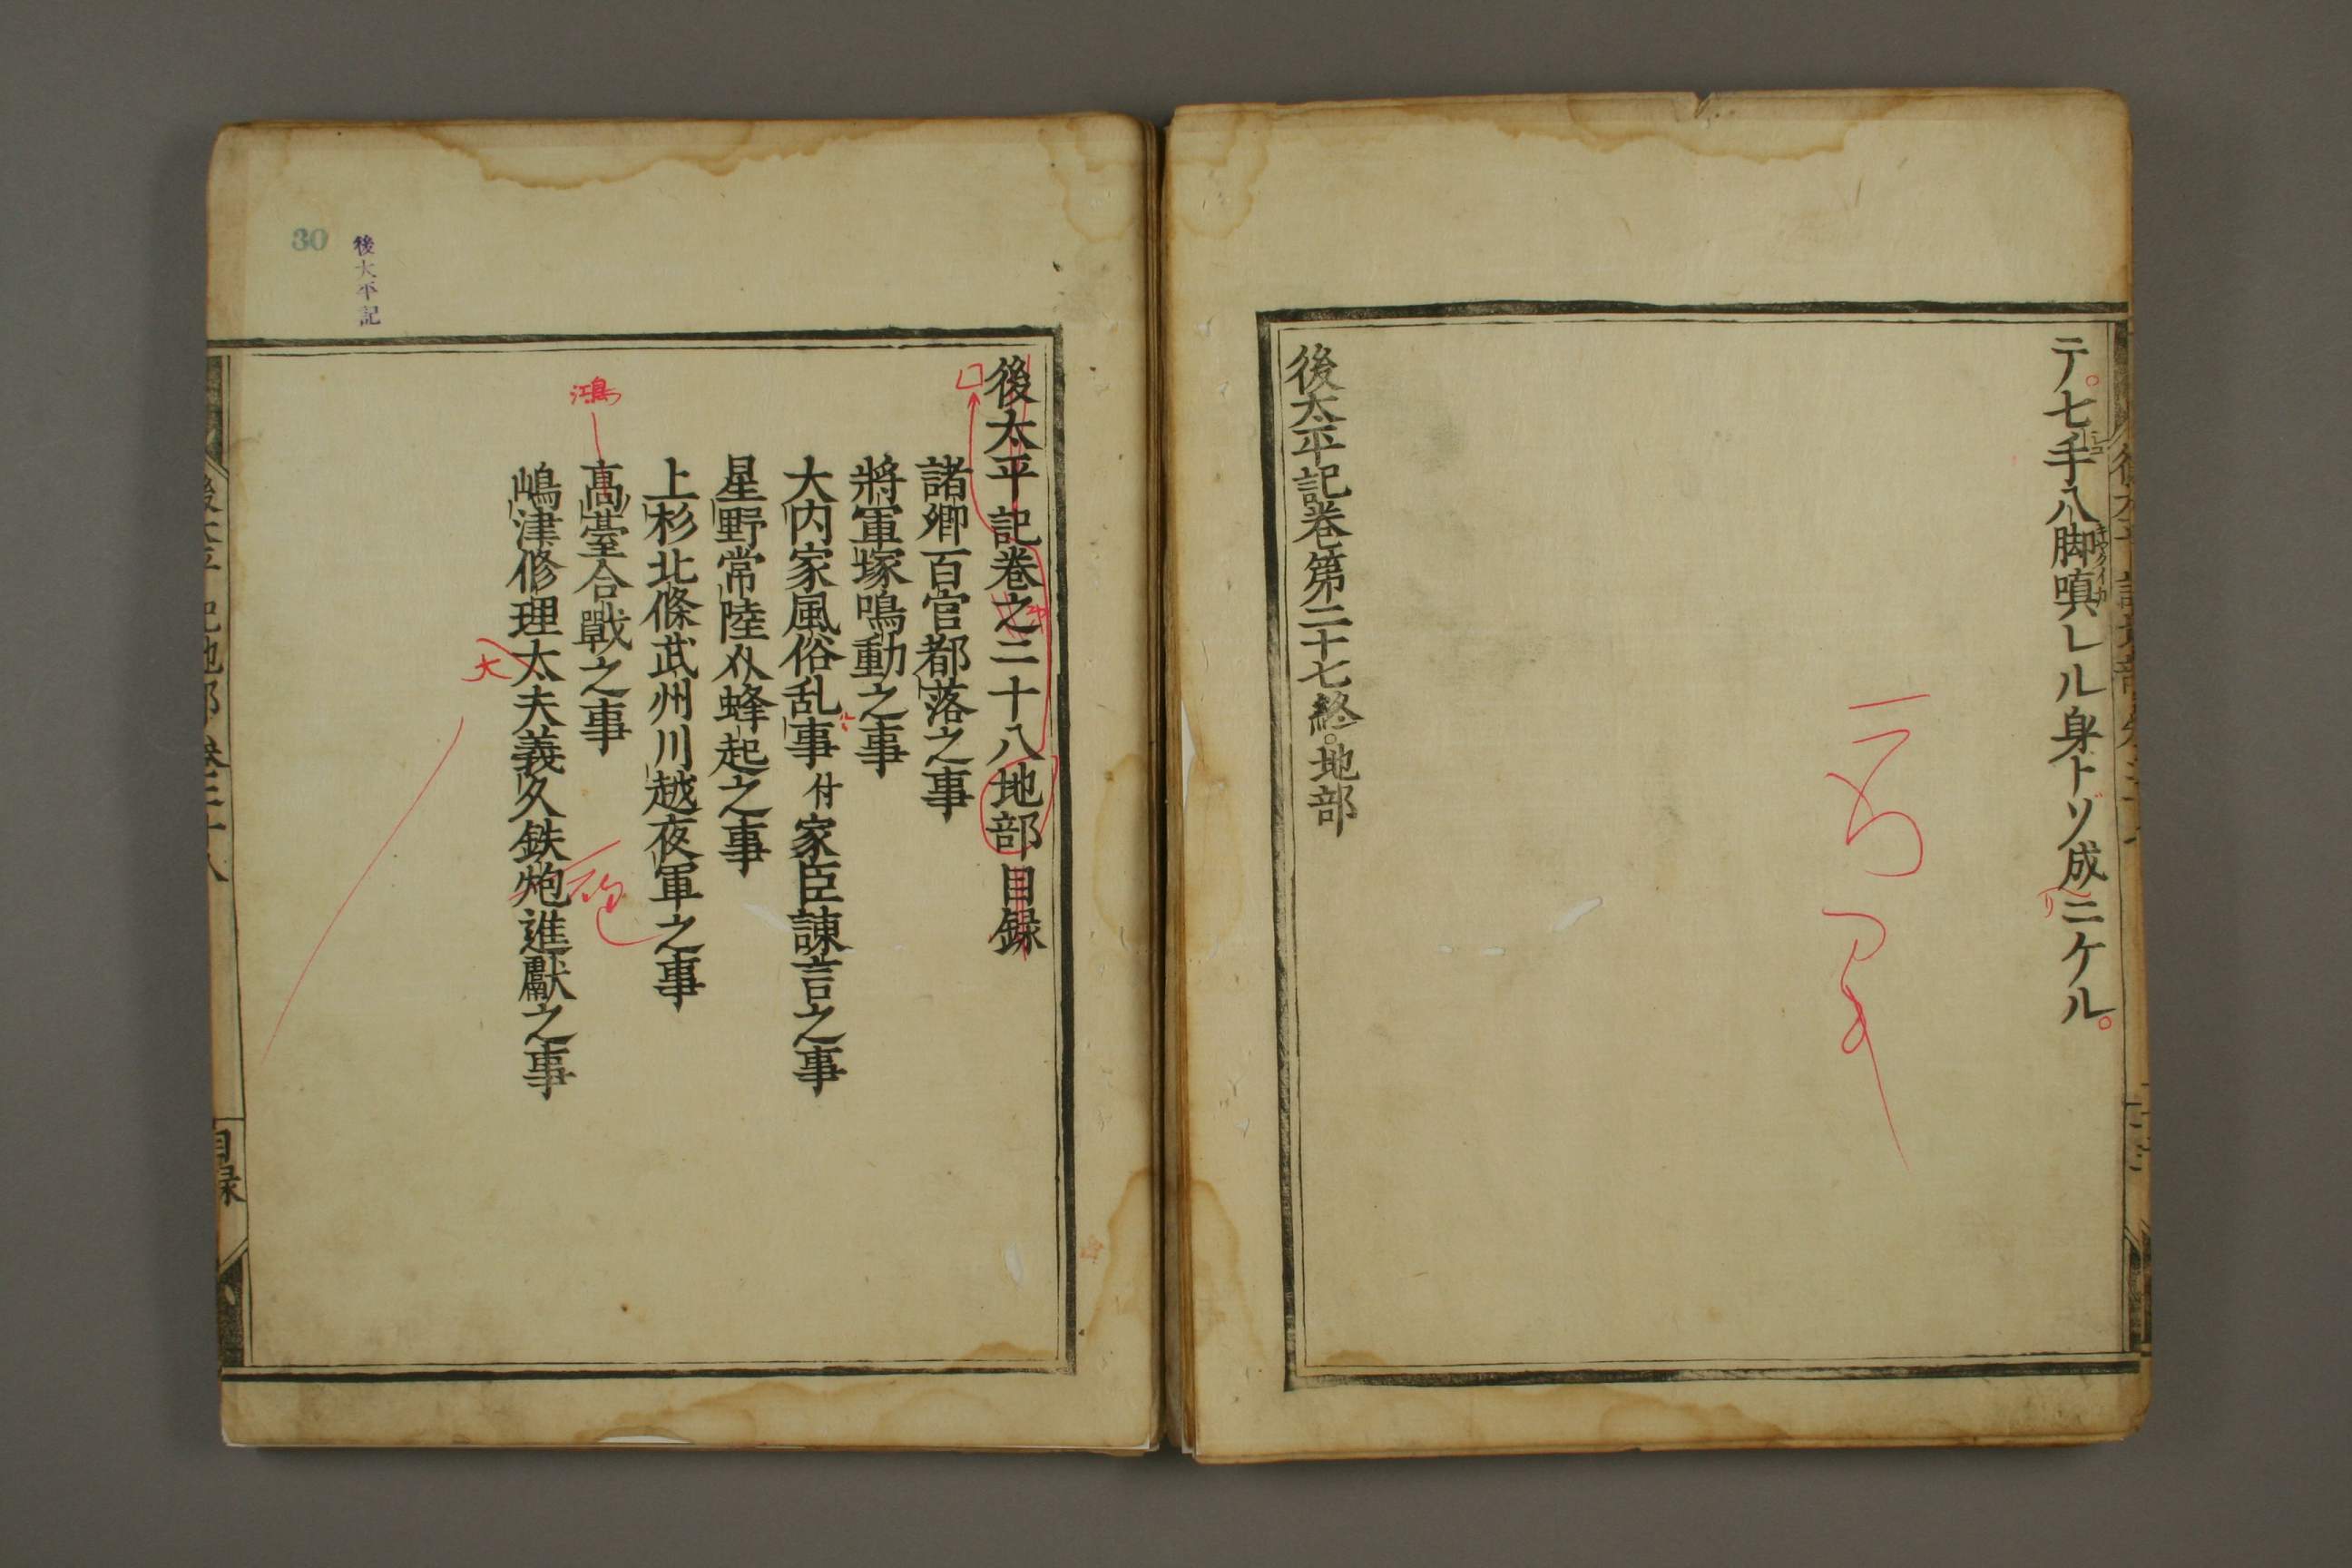 テ。七手八脚嗔レル身トゾ成ニケル。
後太平記卷第二十七終。地部
後太平記卷之二十八地部目録
諸卿百官都落之事
將軍塚鳴動之事
大内家風俗乱事付家臣諫言之事
星野常陸介蜂起之事
上杉北條武州川越夜軍之事
鴻
髙臺合戰之事
嶋津修理太夫義久鉄炮進獻之事
大
砲
後太平記
30
目録